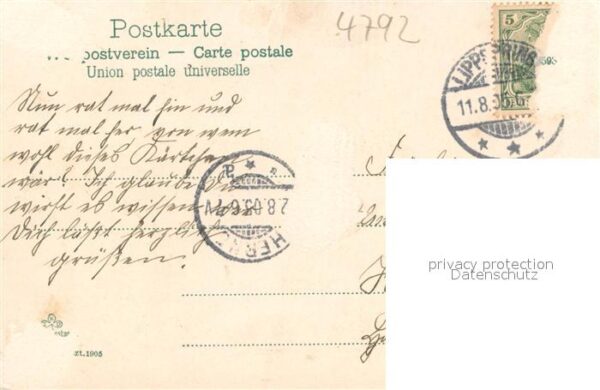 Postkarte
4792
postverein — Carte postale
Union postale universelle
5
LIPPSPRING
11.8.05.6
Nun rat mal hin und
rat mal her von wem
wohl dieses Kärtchen
wär! Ich glaube Du
wirst es wissen wer
Dich läßt herzlich
grüßen.
2.8.05.6-7V
HERN
privacy protection
Datenschutz
zt. 1905